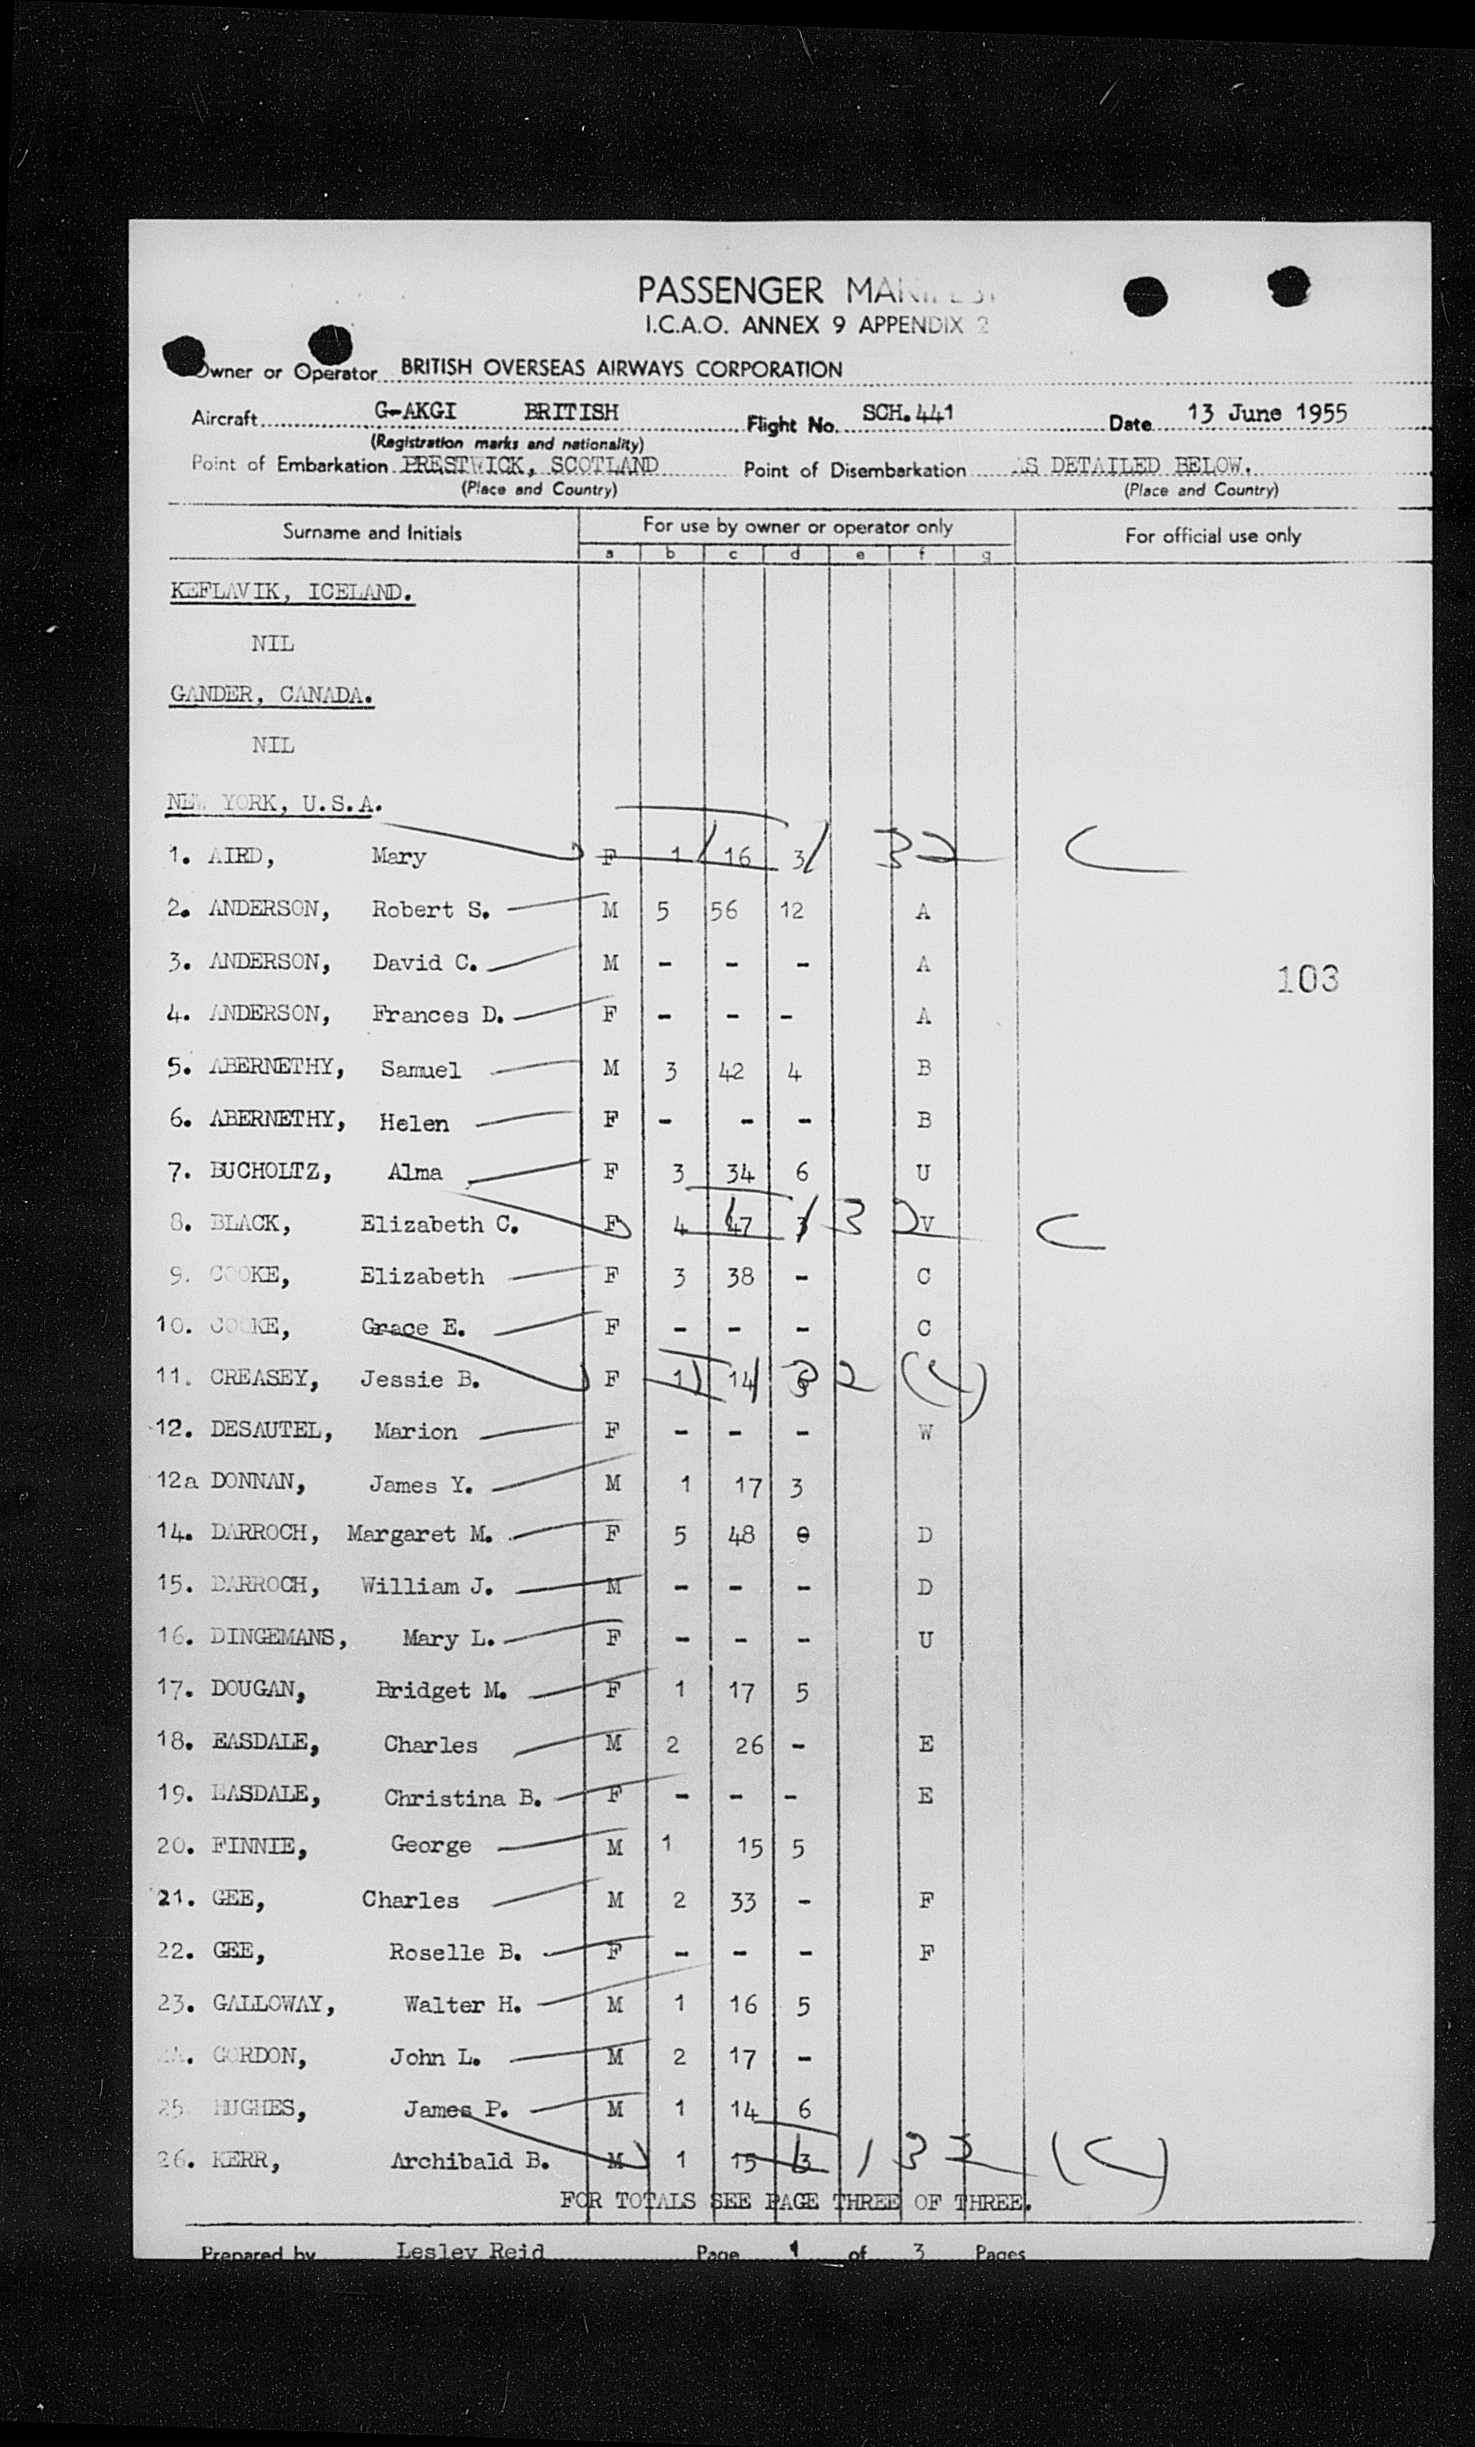 PASSENGER MANIFEST
I.C.A.O. ANNEX 9 APPENDIX 2
Owner or Operator BRITISH OVERSEAS AIRWAYS CORPORATION
Aircraft G-AKGI BRITISH Flight No. SCH.441 Date 13 June 1955
(Registration marks and nationality)
Point of Embarkation PRESTWICK, SCOTLAND Point of Disembarkation AS DETAILED BELOW.
(Place and Country) (Place and Country)
Surname and Initials For use by owner or operator only For official use only
a b c d e f g
KEFLAVIK, ICELAND.
NIL
GANDER, CANADA.
NIL
NEW YORK, U.S.A.
1. AIRD, Mary F 1 16 3 32 C
2. ANDERSON, Robert S. M 5 56 12 A
3. ANDERSON, David C. M - - - A
103
4. ANDERSON, Frances D. F - - - A
5. ABERNETHY, Samuel M 3 42 4 B
6. ABERNETHY, Helen F - - - B
7. BUCHOLTZ, Alma F 3 34 6 U
8. BLACK, Elizabeth C. F 4 47 3 32 V C
9. COOKE, Elizabeth F 3 38 - C
10. COOKE, Grace E. F - - - C
11. CREASEY, Jessie B. F 1 14 32 (C)
12. DESAUTEL, Marion F - - - W
12a DONNAN, James Y. M 1 17 3
14. DARROCH, Margaret M. F 5 48 D
15. DARROCH, William J. M - - - D
16. DINGEMANS, Mary L. F - - - U
17. DOUGAN, Bridget M. F 1 17 5
18. EASDALE, Charles M 2 26 - E
19. EASDALE, Christina B. F - - - E
20. FINNIE, George M 1 15 5
21. GEE, Charles M 2 33 - F
22. GEE, Roselle B. F - - - F
23. GALLOWAY, Walter H. M 1 16 5
24. GORDON, John L. M 2 17 -
25 HUGHES, James P. M 1 14 6
26. KERR, Archibald B. M 1 15 3 132 (C)
FOR TOTALS SEE PAGE THREE OF THREE.
Prepared by Lesley Reid Page 1 of 3 Pages